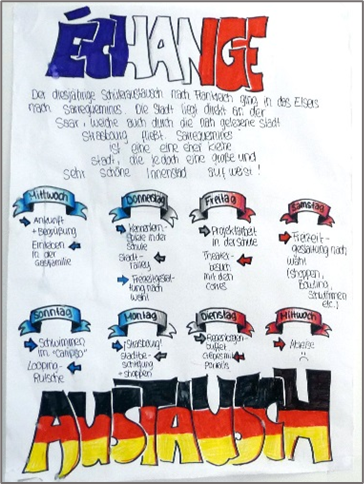 ÉCHANGE
Der diesjährige Schüleraustausch nach Frankreich ging in das Elsass
nach Sarreguemines. Die Stadt liegt direkt an der
Saar, welche auch durch die nah gelegene Stadt
Strasbourg fließt. Sarreguemines
ist eine eine eher kleine
Stadt, die jedoch eine große und
sehr schöne Innenstadt aufweist!
Mittwoch
Ankunft
+ Begrüßung
Einleben
in der
Gastfamilie
Donnerstag
Kennenlern-
Spiele in der
Schule
Stadt-
ralley
Freizeitgestal-
tung nach
Wahl
Freitag
Projektarbeit
in der Schule
Theater-
besuch
mit den
Corres
Samstag
Freizeit-
gestaltung nach
Wahl
(shoppen,
Bowling,
etc.)
Sonntag
Schwimmen
im "Calipso"
Looping-
Rutsche
Montag
Strasbourg!
Stadtbe-
sichtigung
+ shoppen
Dienstag
buffet
Crêpes mit
Mittwoch
Abreise
:(
AUSTAUSCH